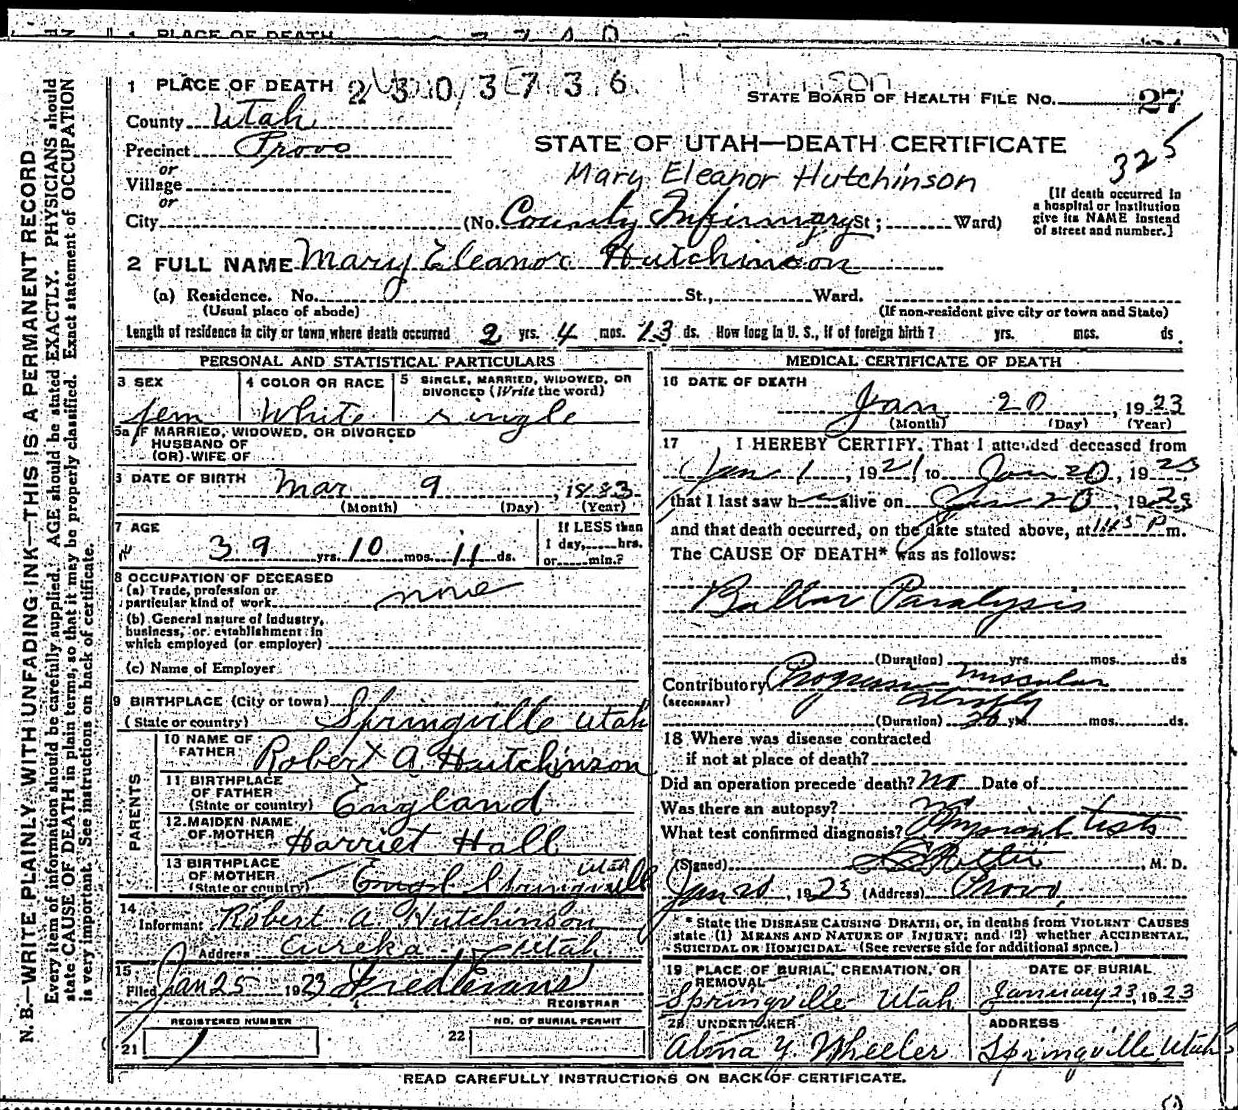 1 PLACE OF DEATH
1 PLACE OF DEATH 2 3 0 3 7 3 6
STATE BOARD OF HEALTH FILE NO. 27
County Utah
325
Precinct Provo
STATE OF UTAH—DEATH CERTIFICATE
or
Village
Mary Eleanor Hutchinson
or
City (No. County Infirmary St; Ward)
[If death occurred in
a hospital or institution
give its NAME instead
of street and number.]
2 FULL NAME Mary Eleanor Hutchinson
(a) Residence. No. St., Ward.
(Usual place of abode) (If non-resident give city or town and State)
Length of residence in city or town where death occurred 2 yrs. 4 mos. 13 ds. How long in U. S., if of foreign birth? yrs. mos. ds.
PERSONAL AND STATISTICAL PARTICULARS
3 SEX
fem
4 COLOR OR RACE
White
5 SINGLE, MARRIED, WIDOWED, OR
DIVORCED (Write the word)
single
5a IF MARRIED, WIDOWED, OR DIVORCED
HUSBAND OF
(OR) WIFE OF
6 DATE OF BIRTH
Mar 9, 1883
(Month) (Day) (Year)
7 AGE
39 yrs. 10 mos. 11 ds.
If LESS than
1 day, hrs.
or min.?
8 OCCUPATION OF DECEASED
(a) Trade, profession or
particular kind of work none
(b) General nature of industry,
business, or establishment in
which employed (or employer)
(c) Name of Employer
9 BIRTHPLACE (City or town)
(State or country) Springville Utah
PARENTS
10 NAME OF
FATHER Robert A. Hutchinson
11 BIRTHPLACE
OF FATHER
(State or country) England
12 MAIDEN NAME
OF MOTHER Harriet Hall
13 BIRTHPLACE
OF MOTHER
(State or country) Engl Springville Utah
14
Informant Robert A Hutchinson
Address Eureka Utah
15
Filed Jan 25 1923 Fred Evans
REGISTRAR
REGISTERED NUMBER
21 1
NO. OF BURIAL PERMIT
22
MEDICAL CERTIFICATE OF DEATH
16 DATE OF DEATH
Jan 20, 1923
(Month) (Day) (Year)
17 I HEREBY CERTIFY, That I attended deceased from
Jan 1, 1921, to Jan 20, 1923
that I last saw h alive on Jan 20, 1923
and that death occurred, on the date stated above, at 1:45 P m.
The CAUSE OF DEATH* was as follows:
Bulbar Paralysis
(Duration) yrs. mos. ds
Contributory Progressive muscular
(SECONDARY) atrophy
(Duration) 20 yrs mos. ds.
18 Where was disease contracted
if not at place of death?
Did an operation precede death? No Date of
Was there an autopsy? no
What test confirmed diagnosis? Physical tests
(Signed) M. D.
Jan 20, 1923 (Address) Provo,
* State the DISEASE CAUSING DEATH; or, in deaths from VIOLENT CAUSES
state (1) MEANS AND NATURE OF INJURY; and (2) whether ACCIDENTAL,
SUICIDAL OR HOMICIDAL. (See reverse side for additional space.)
19 PLACE OF BURIAL, CREMATION, OR
REMOVAL
Springville Utah
DATE OF BURIAL
January 23, 1923
20 UNDERTAKER
Alma Y. Wheeler
ADDRESS
Springville Utah
READ CAREFULLY INSTRUCTIONS ON BACK OF CERTIFICATE.
N. B.—WRITE PLAINLY WITH UNFADING INK—THIS IS A PERMANENT RECORD
Every item of information should be carefully supplied. AGE should be stated EXACTLY. PHYSICIANS should
state CAUSE OF DEATH in plain terms, so that it may be properly classified. Exact statement of OCCUPATION
is very important. See instructions on back of certificate.